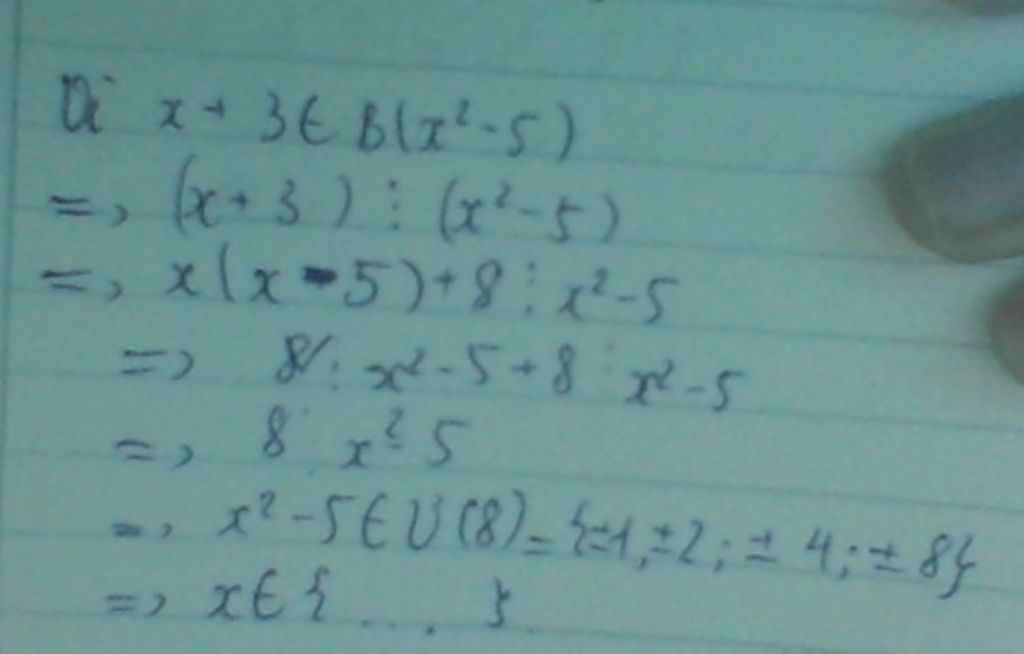 Để x + 3 ∈ B(x² - 5)
=> (x + 3) ⋮ (x² - 5)
=> x(x - 5) + 8 ⋮ x² - 5
=> 8 ⋮ x² - 5 + 8 ⋮ x² - 5
=> 8 ⋮ x² - 5
=> x² - 5 ∈ Ư(8) = {±1, ±2; ± 4; ± 8}
=> x ∈ { .... }